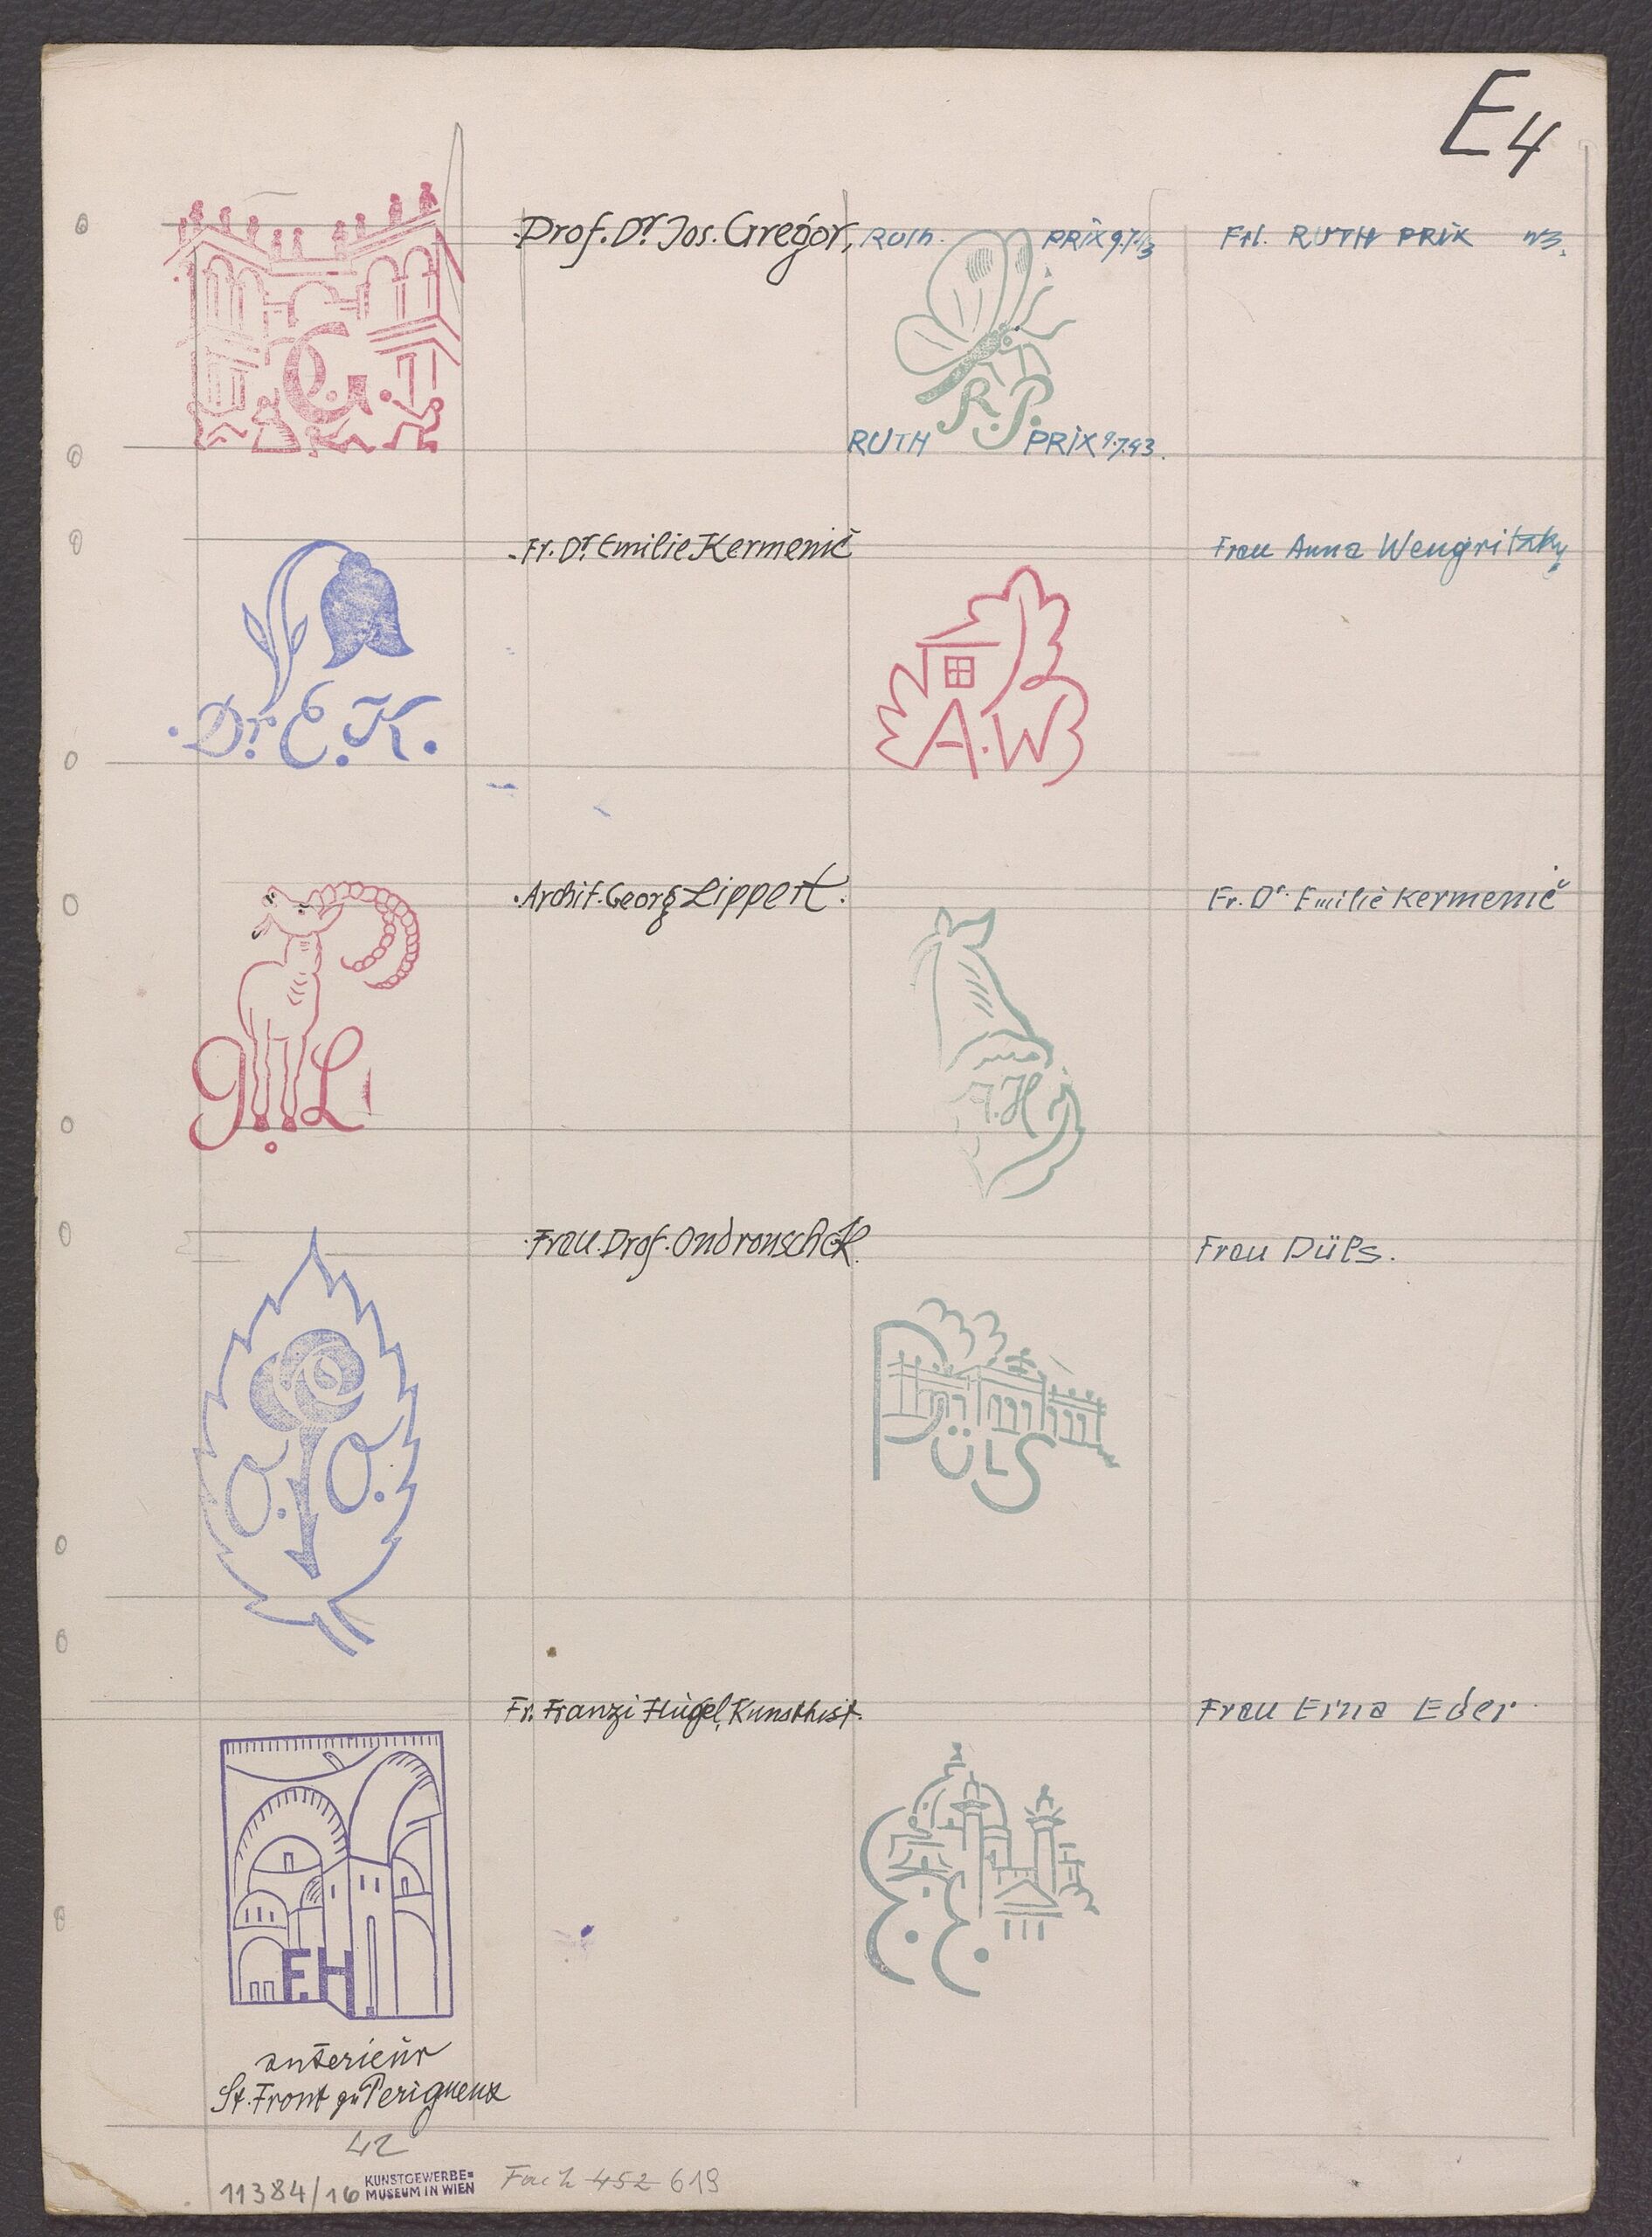 E4
Prof. Dr. Jos. Gregor,
G.
Ruth PRIX 9.7.43
R.P.
RUTH PRIX 9.7.43.
Frl. RUTH PRIX
Fr. Dr. Emilie Kermenič
Dr. E. K.
A.W
Frau Anna Wengritzky
Archit. Georg Lippert.
G. L
A.H
Fr. Dr. Emilie Kermenič
Frau Prof.
O. O.
DÜLS
Frau Düls.
Fr. Franzi Hügel, Kunsthist.
F.H.
E. E.
Frau Erna Eder
interieur
St. Front zu Perigueux
42
11384/16 KUNSTGEWERBE=
MUSEUM IN WIEN
Fach 452 619